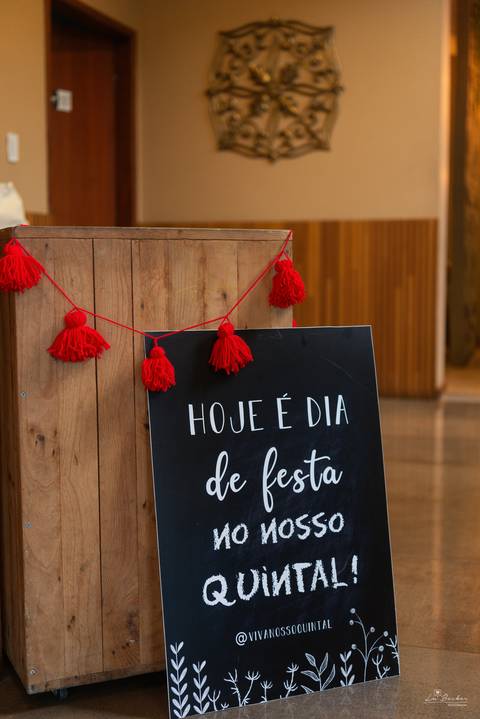 HOJE É DIA
de festa
NO NOSSO
QUINTAL!
@VIVANOSSOQUINTAL